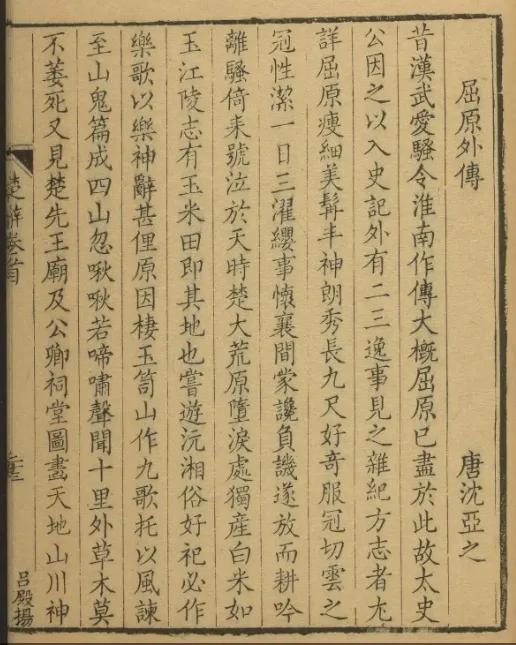 屈原外傳 唐沈亞之
昔漢武愛騷令淮南作傳大概屈原已盡於此故太史
公因之以入史記外有二三逸事見之雜紀方志者尤
詳屈原瘦細美髯丰神朗秀長九尺好奇服冠切雲之
冠性潔一日三濯纓事懷襄間蒙讒負譏遂放而耕吟
離騷倚耒號泣於天時楚大荒原墮淚處獨產白米如
玉江陵志有玉米田即其地也嘗遊沅湘俗好祀必作
樂歌以樂神辭甚俚原因棲玉笥山作九歌托以風諫
至山鬼篇成四山忽啾啾若啼嘯聲聞十里外草木莫
不萎死又見楚先王廟及公卿祠堂圖畫天地山川神
卷首
呂殿揚